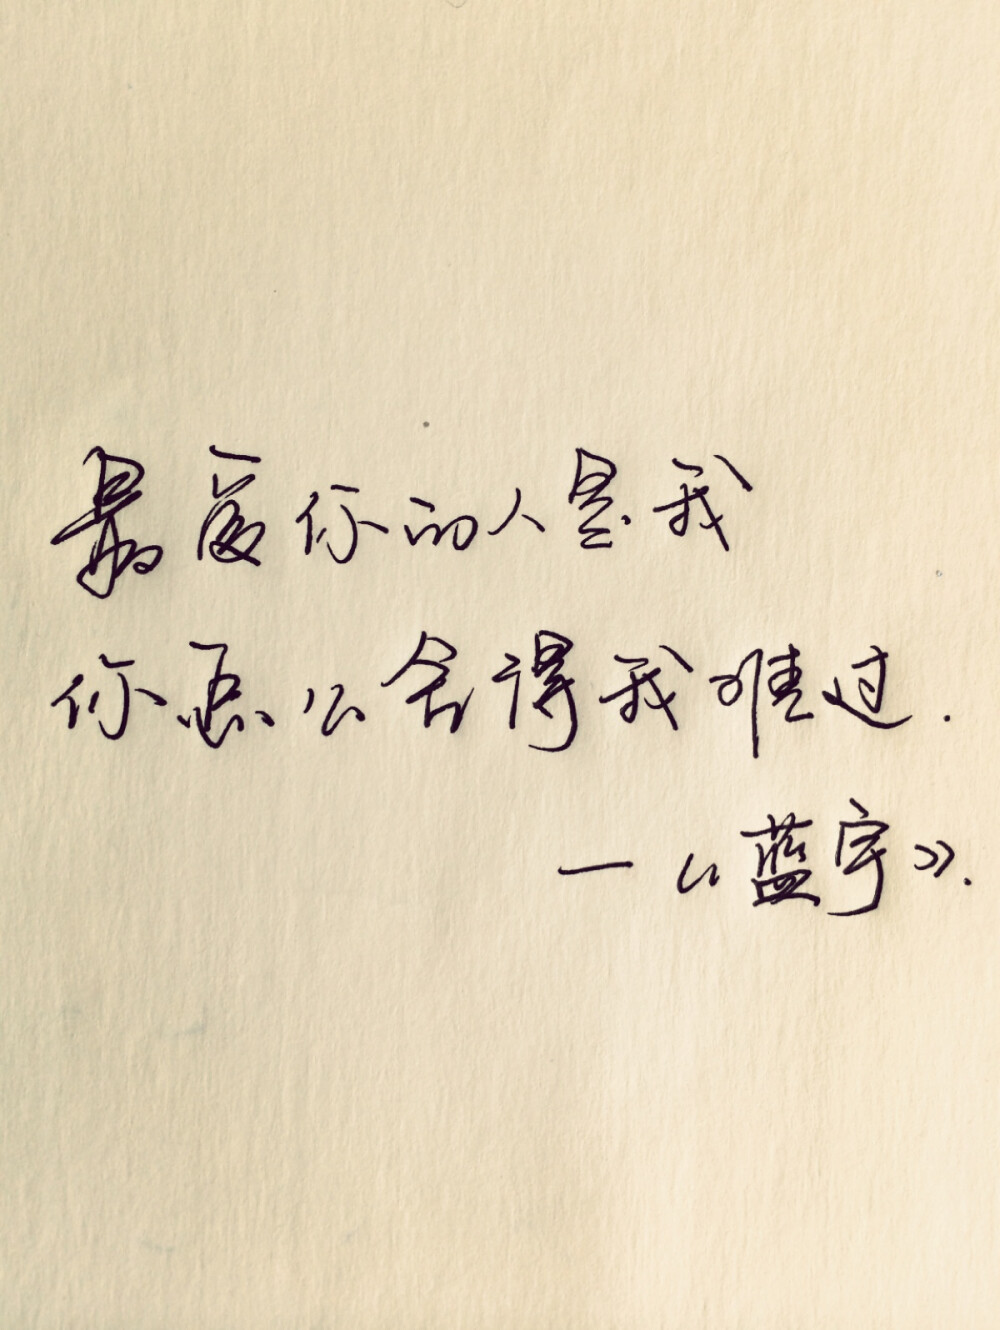 最爱你的人是我
你怎么舍得我难过.
—《蓝宇》.